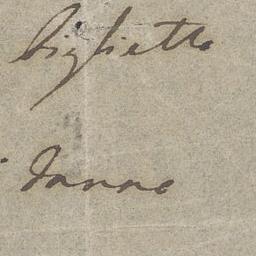 biglietto
Janno